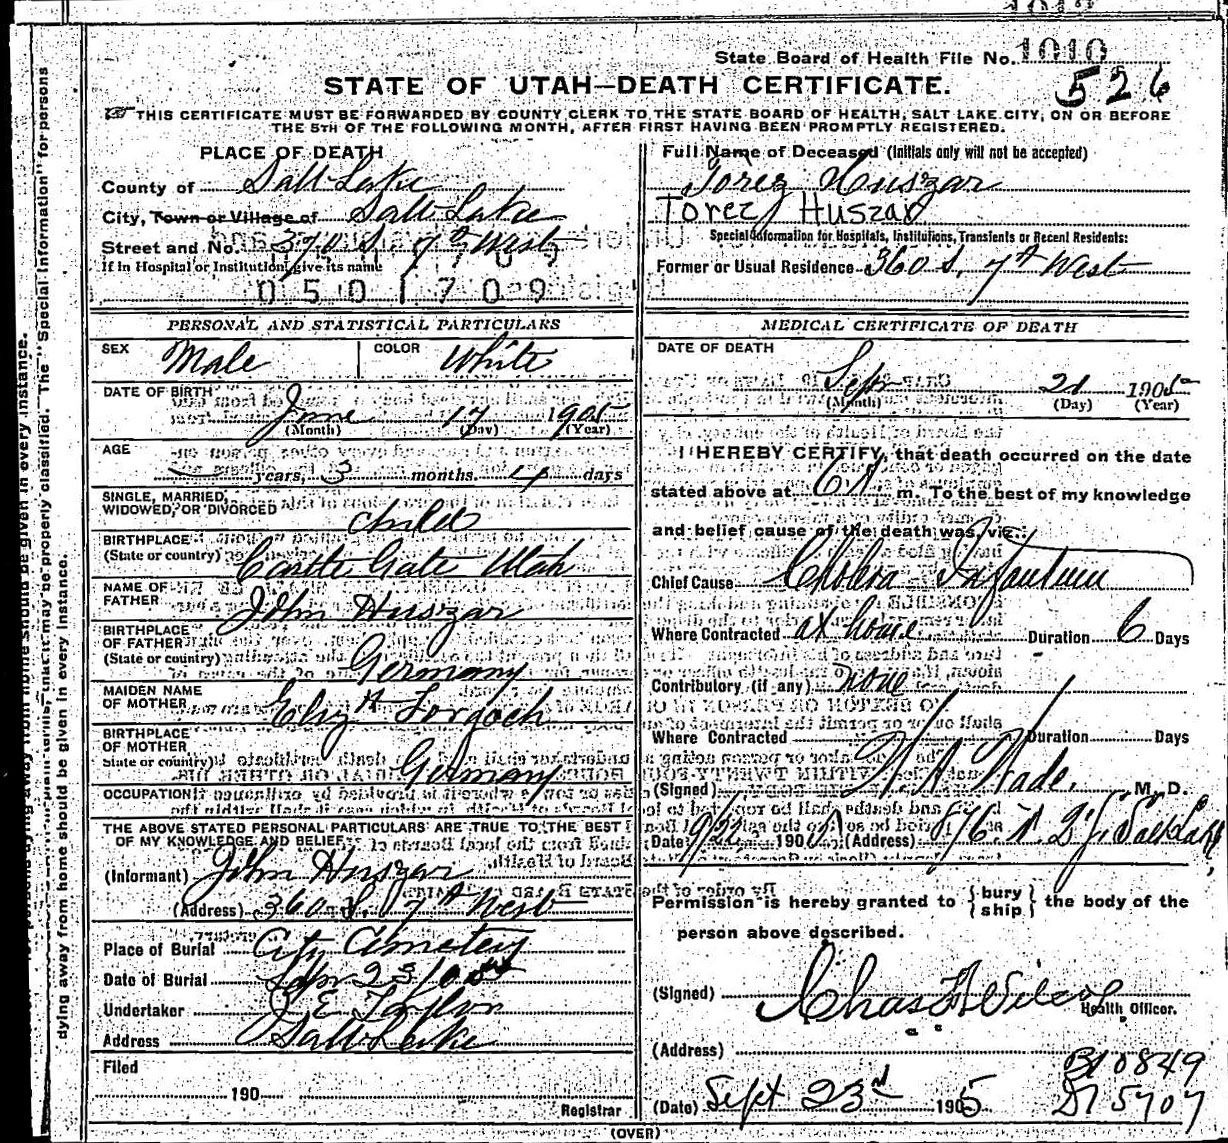 State Board of Health File No. 1010
526
STATE OF UTAH—DEATH CERTIFICATE.
THIS CERTIFICATE MUST BE FORWARDED BY COUNTY CLERK TO THE STATE BOARD OF HEALTH, SALT LAKE CITY, ON OR BEFORE
THE 5TH OF THE FOLLOWING MONTH, AFTER FIRST HAVING BEEN PROMPTLY REGISTERED.
PLACE OF DEATH
County of Salt Lake
City, Town or Village of Salt Lake
Street and No. 370 S. 7th West
If in Hospital or Institution, give its name
0501709
Full Name of Deceased (Initials only will not be accepted)
Torez Huszar
Torez Huszar
Special Information for Hospitals, Institutions, Transients or Recent Residents:
Former or Usual Residence 360 S. 7th West
PERSONAL AND STATISTICAL PARTICULARS
SEX Male COLOR White
DATE OF BIRTH June 17 1905
(Month) (Day) (Year)
AGE
years, 3 months. 4 days
SINGLE, MARRIED,
WIDOWED, OR DIVORCED child
BIRTHPLACE
(State or country) Castle Gate Utah
NAME OF
FATHER John Huszar
BIRTHPLACE
OF FATHER
(State or country) Germany
MAIDEN NAME
OF MOTHER Eliz A Forgach
BIRTHPLACE
OF MOTHER
State or country) Germany
OCCUPATION
THE ABOVE STATED PERSONAL PARTICULARS ARE TRUE TO THE BEST
OF MY KNOWLEDGE AND BELIEF
(Informant) John Huszar
(Address) 360 S. 7th West
Place of Burial City Cemetery
Date of Burial Sep 23 1905
Undertaker E Taylor
Address Salt Lake
Filed
190
Registrar
MEDICAL CERTIFICATE OF DEATH
DATE OF DEATH
Sep 21 1905
(Month) (Day) (Year)
I HEREBY CERTIFY, that death occurred on the date
stated above at 6 A m. To the best of my knowledge
and belief cause of the death was, viz.:
Chief Cause Cholera Infantum
Where Contracted at home Duration 6 Days
Contributory (if any) none
Where Contracted Duration Days
(Signed) Wade. M. D.
Date 9/22 190 (Address) 876. Salt Lake
Permission is hereby granted to {bury ship} the body of the
person above described.
(Signed) Chas Wilcox
Health Officer.
(Address)
B10849
(Date) Sept 23rd 1905 D15707
(OVER)
dying away from home should be given in every instance.